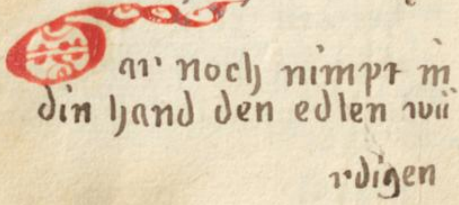 Dar noch nimpt in
din hand den edlen wü
rdigen